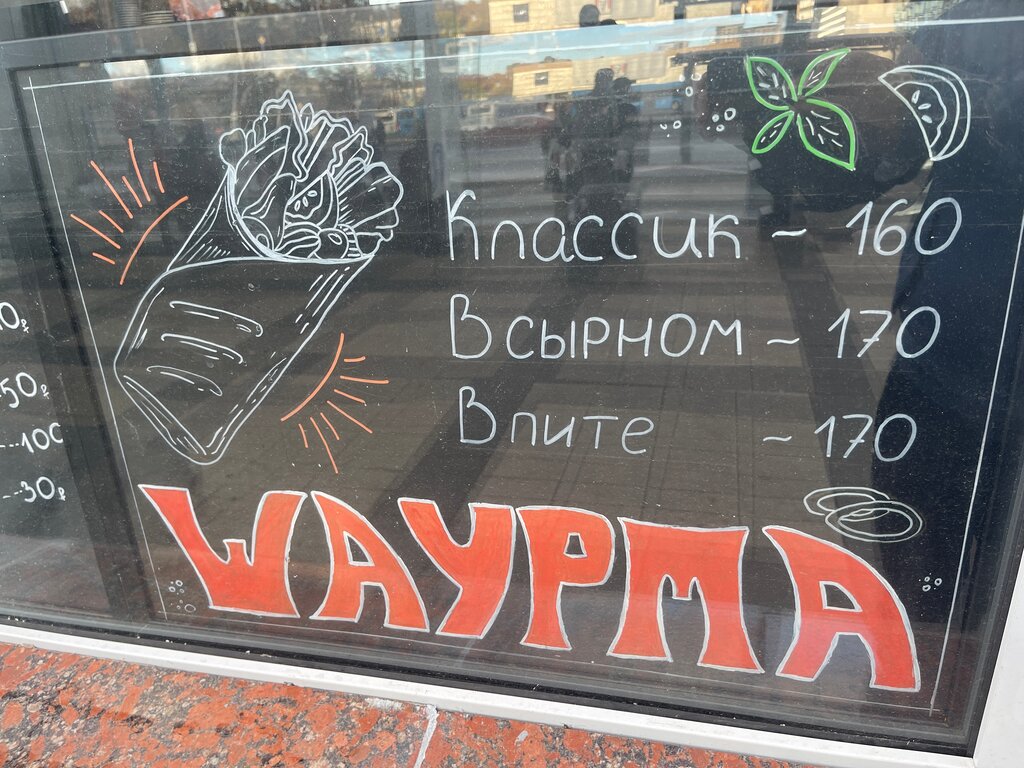 Классик ~ 160
В сырном ~ 170
В пите ~ 170
ШАУРМА
50₽
100
30₽